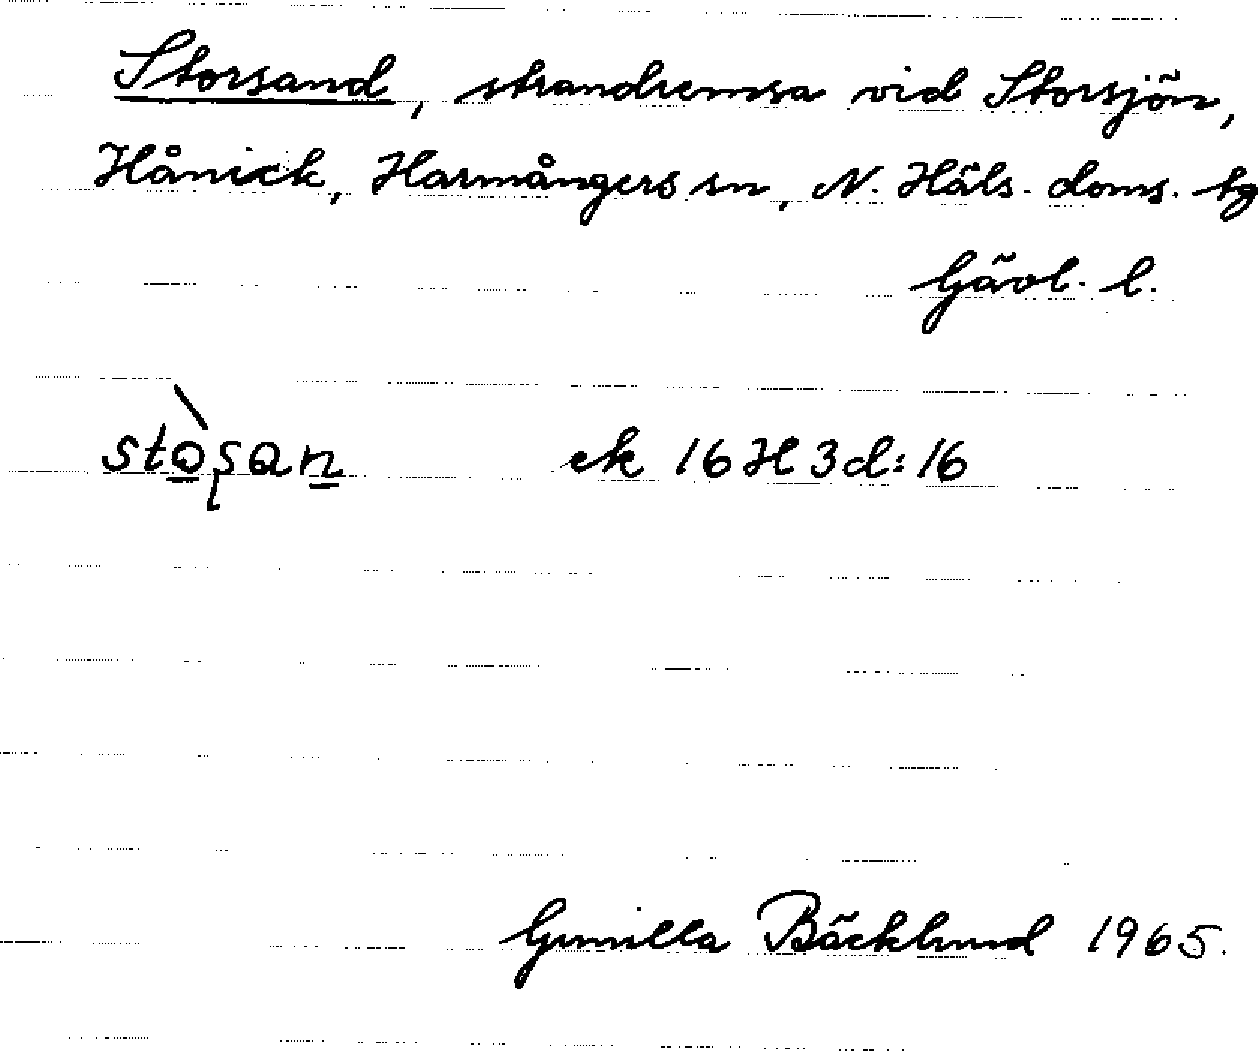 Storsand, strandremsa vid Storsjön,
Hånick, Harmångers sn, N. Häls. doms. tg
Gävl. l.
stò̱ʂan̲ ek 16 H 3d:16
Gunilla Bäcklund 1965.